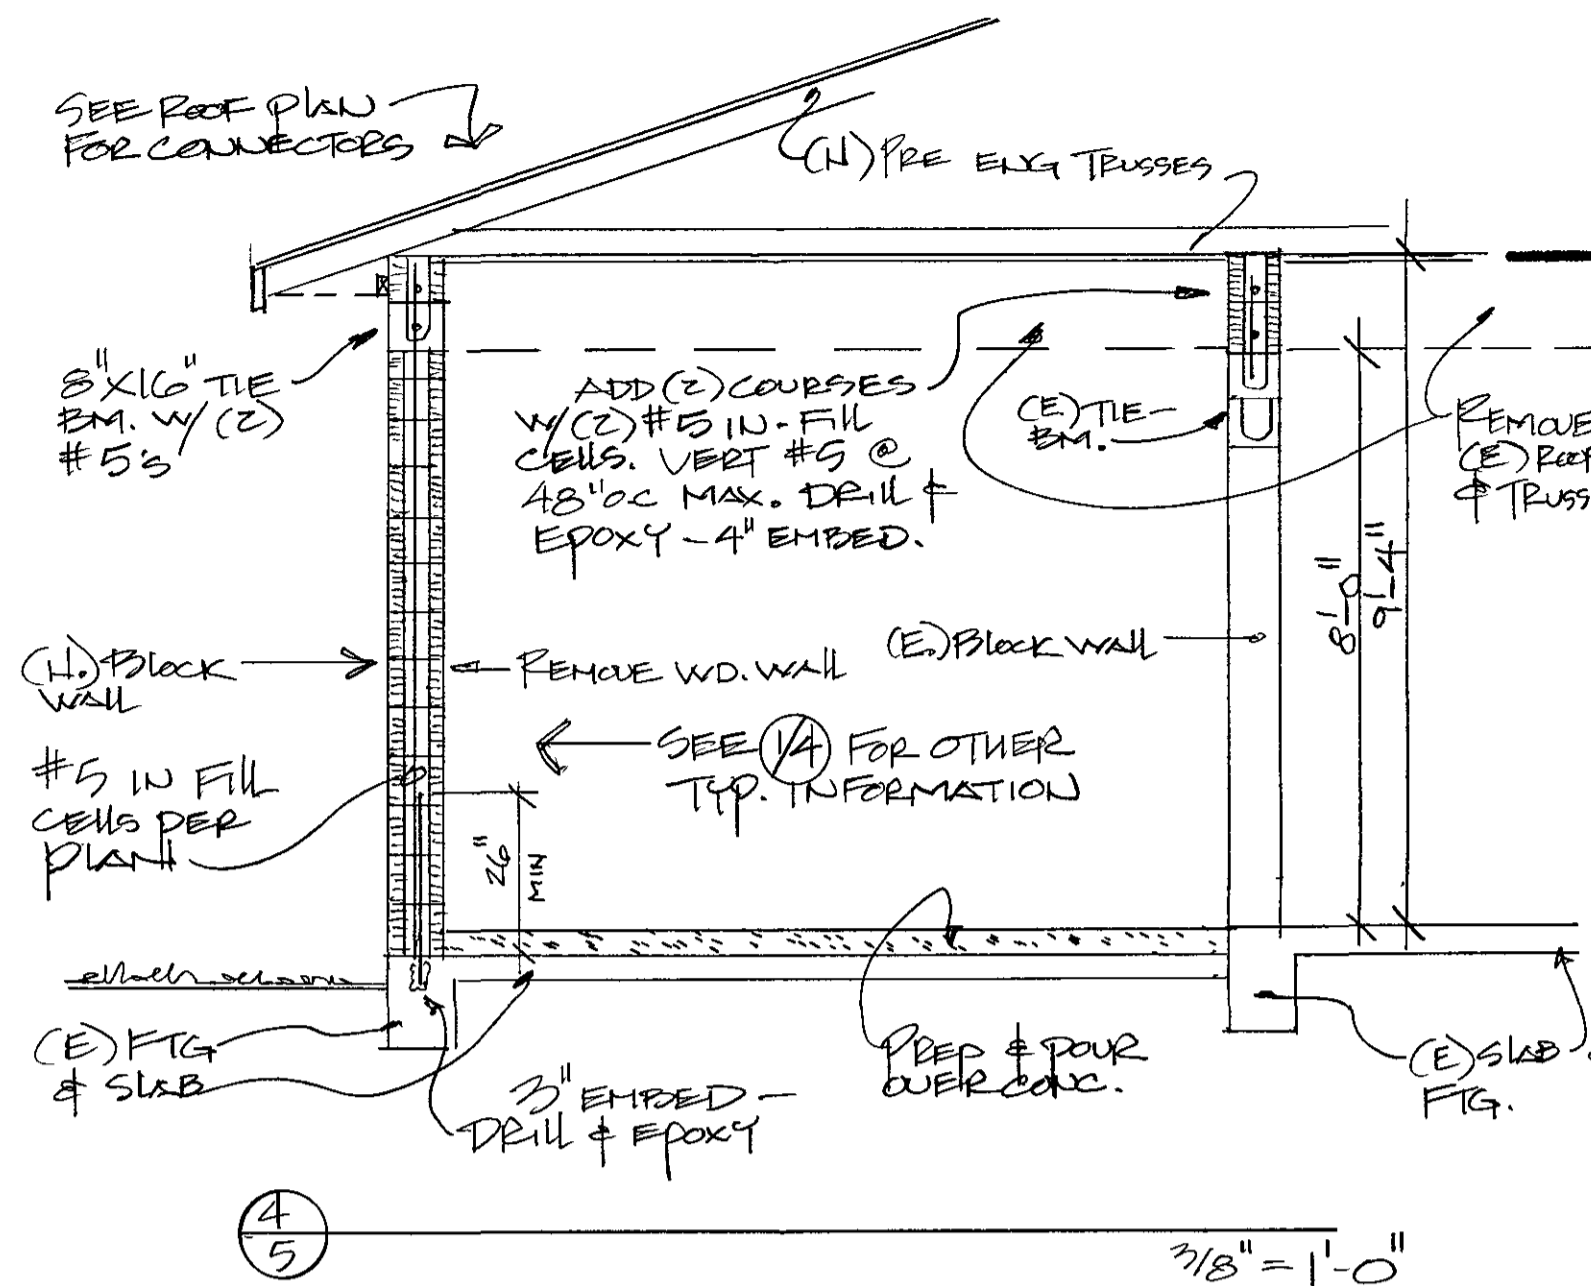 SEE ROOF PLAN
FOR CONNECTORS
(N) PRE ENG TRUSSES
8"X16" TIE
BM. W/ (2)
#5's
ADD (2) COURSES
W/(2) #5 IN-FILL
CELLS. VERT #5 @
48"OC MAX. DRILL &
EPOXY - 4" EMBED.
(E) TIE-
BM.
REMOVE
(E) ROOF
& TRUSS
8'-0"
9'-4"
(N.) BLOCK
WALL
REMOVE WD. WALL
(E.) BLOCK WALL
SEE 1/4 FOR OTHER
TYP. INFORMATION
#5 IN FILL
CELLS PER
PLAN
26"
MIN
(E) FTG
& SLAB
3" EMBED -
DRILL & EPOXY
PREP & POUR
OVER CONC.
(E) SLAB
FTG.
4
5
3/8" = 1'-0"